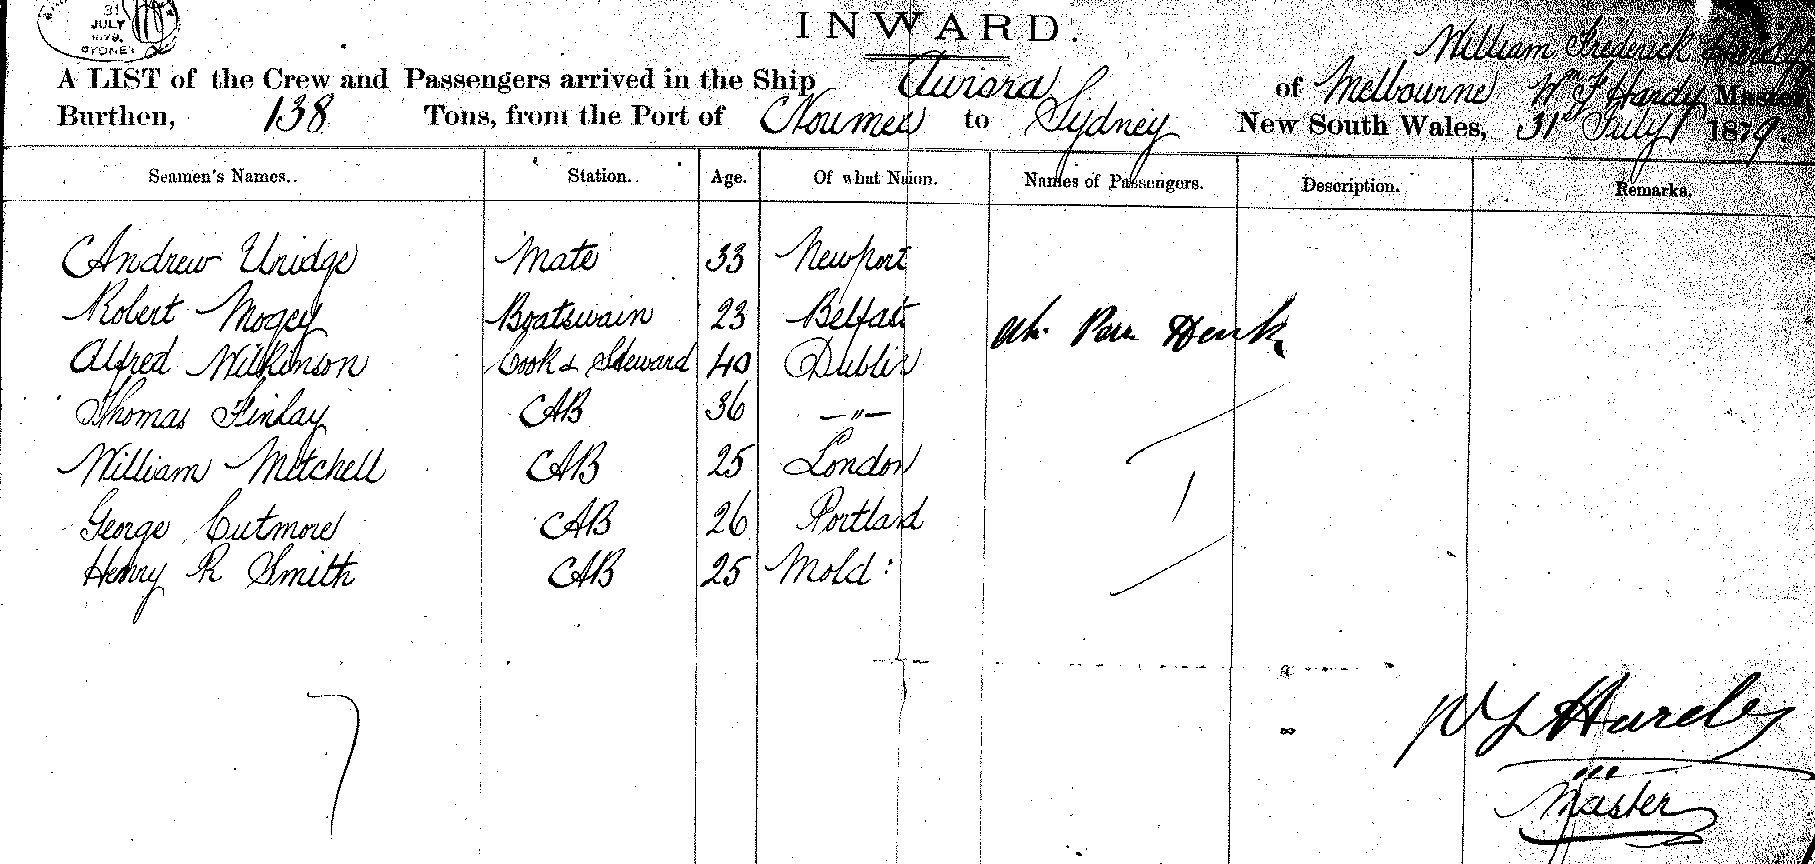 31
JULY
1879
SYDNEY
INWARD.
William Frederick
A LIST of the Crew and Passengers arrived in the Ship Aurora of Melbourne Wm F Hardy Master
Burthen, 138 Tons, from the Port of Noumea to Sydney New South Wales, 31st July 1879
Seamen's Names.. Station.. Age. Of what Nation. Names of Passengers. Description. Remarks.
Andrew Uridge Mate 33 Newport
Robert Mogey Boatswain 23 Belfast
Alfred Wilkinson Cook & Steward 40 Dublin
Thomas Finlay AB 36 —"—
William Mitchell AB 25 London
George Cutmore AB 26 Portland
Henry R Smith AB 25 Mold:
7
W F Hardy
Master